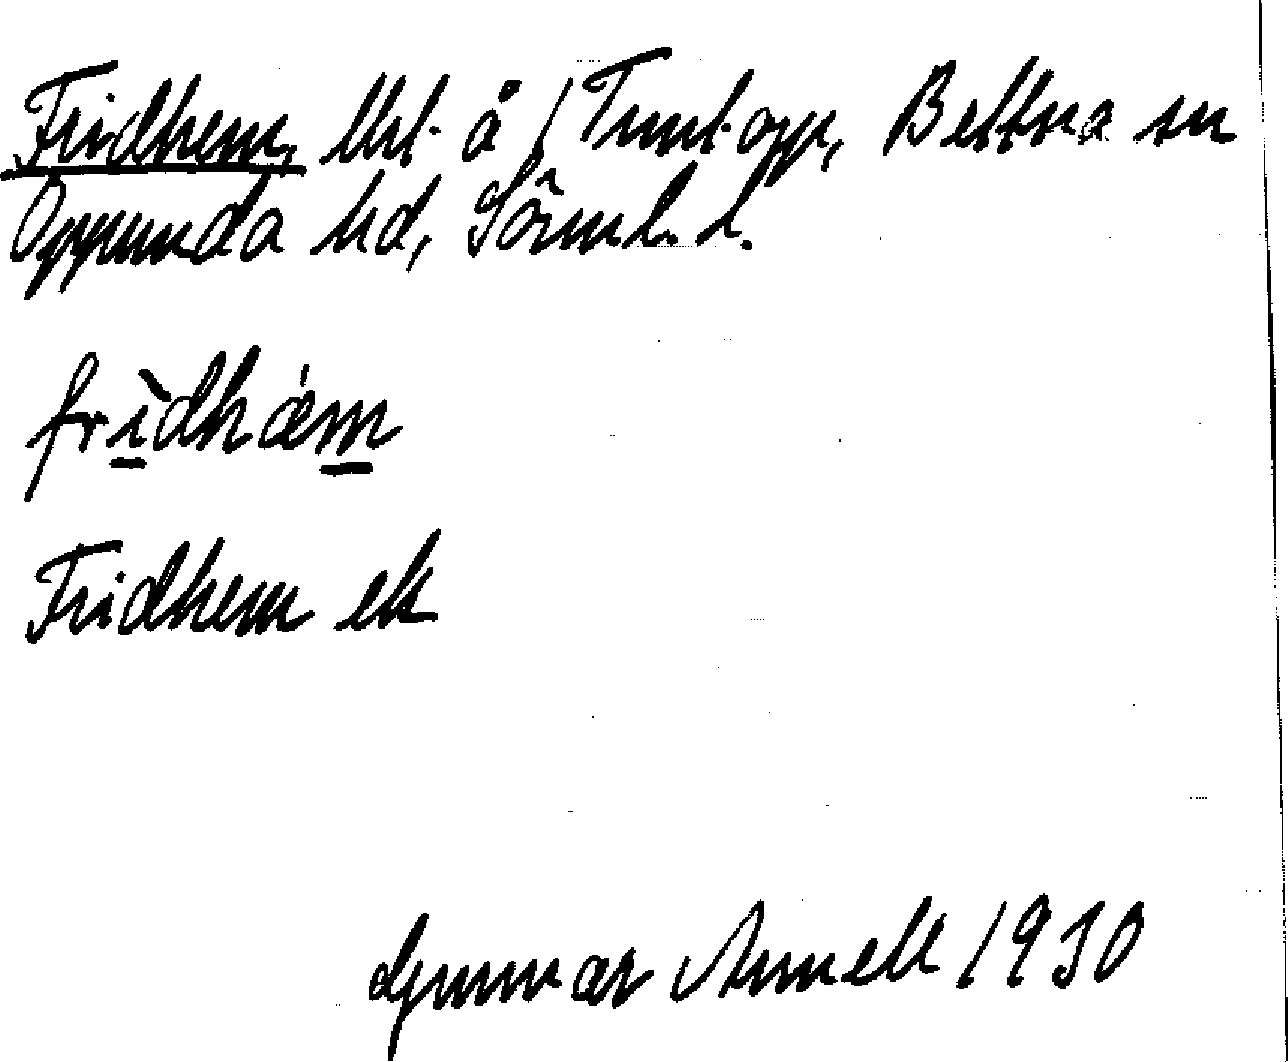 Fridhem, lht. å 1 Tuntorp, Bettna sn
Oppunda hd, Sörml. l.
frìdhǽm
Fridhem ek
Gunnar Arnell 1930